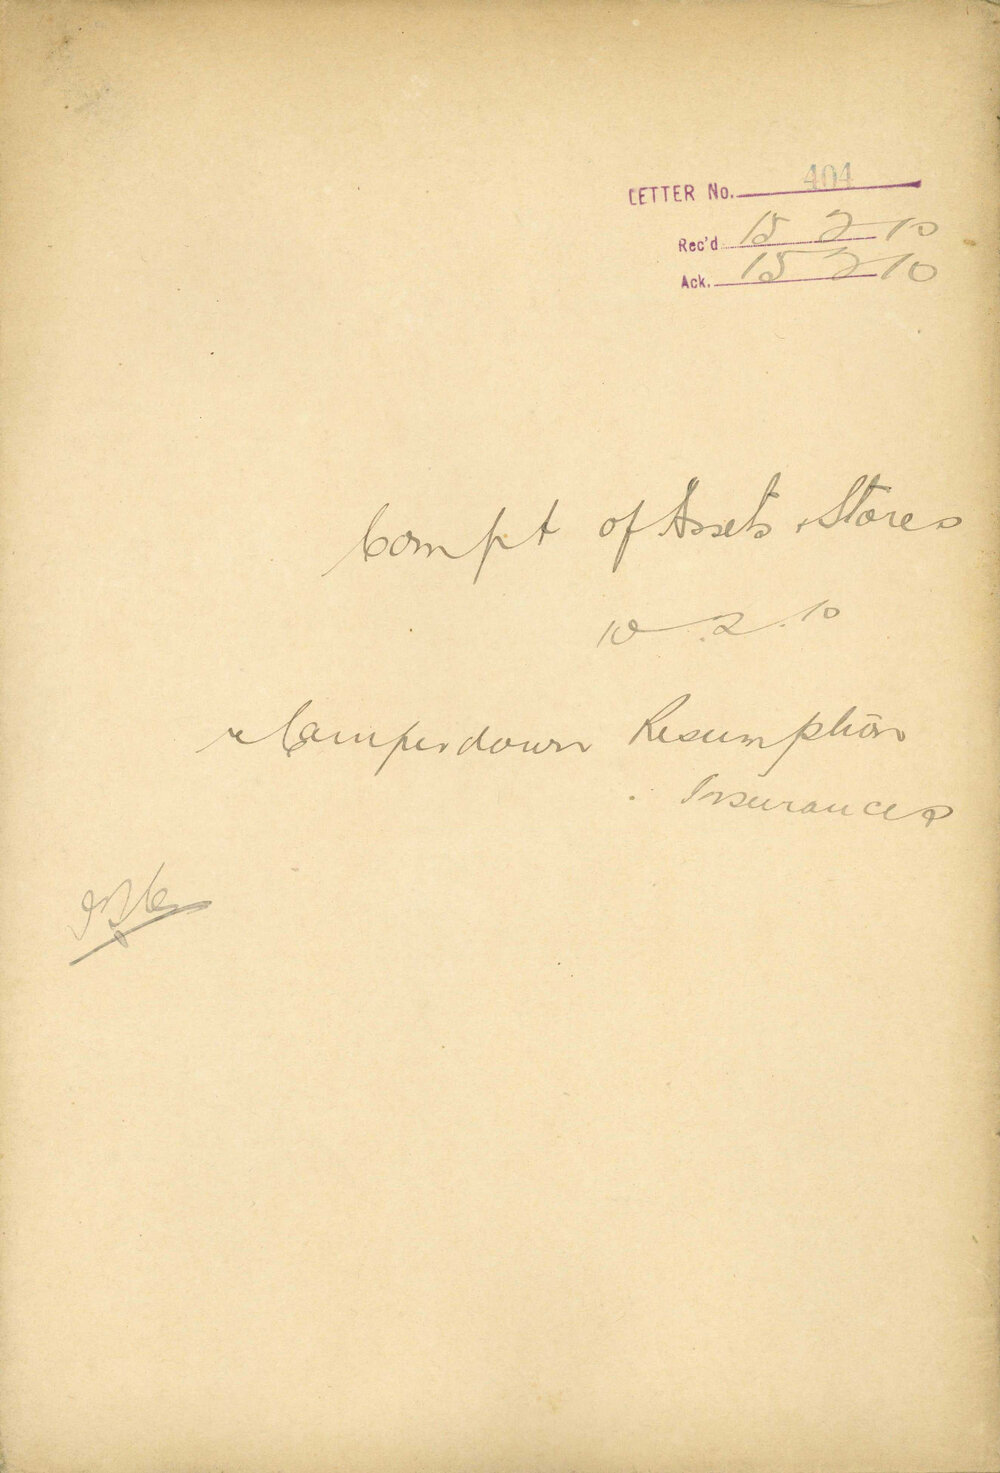 LETTER No. 404
Rec'd 15 2 10
Ack. 15 2 10
Compt of Assets & Stores
10.2.10
re Camperdown Resumption
Insurances